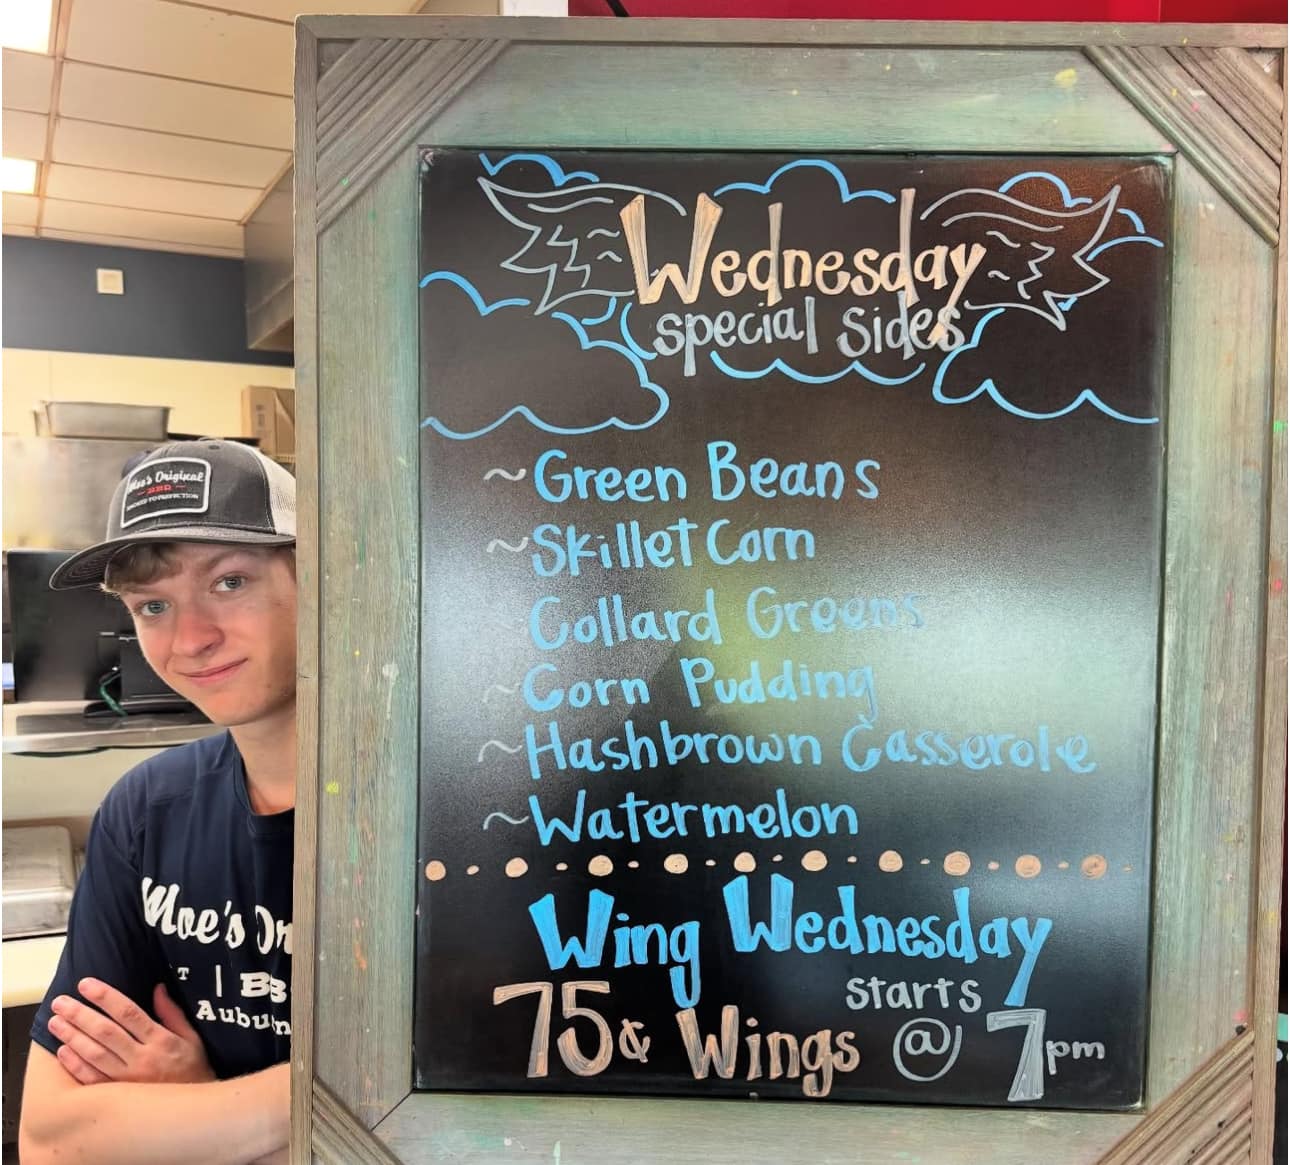 Wednesday
special sides
~Green Beans
~Skillet Corn
~Collard Greens
~Corn Pudding
~Hashbrown Casserole
~Watermelon
Wing Wednesday
starts
75¢ Wings @ 7pm
Moe's Original
BBQ
SMOKED TO PERFECTION
Moe's Or
T | BB
Auburn